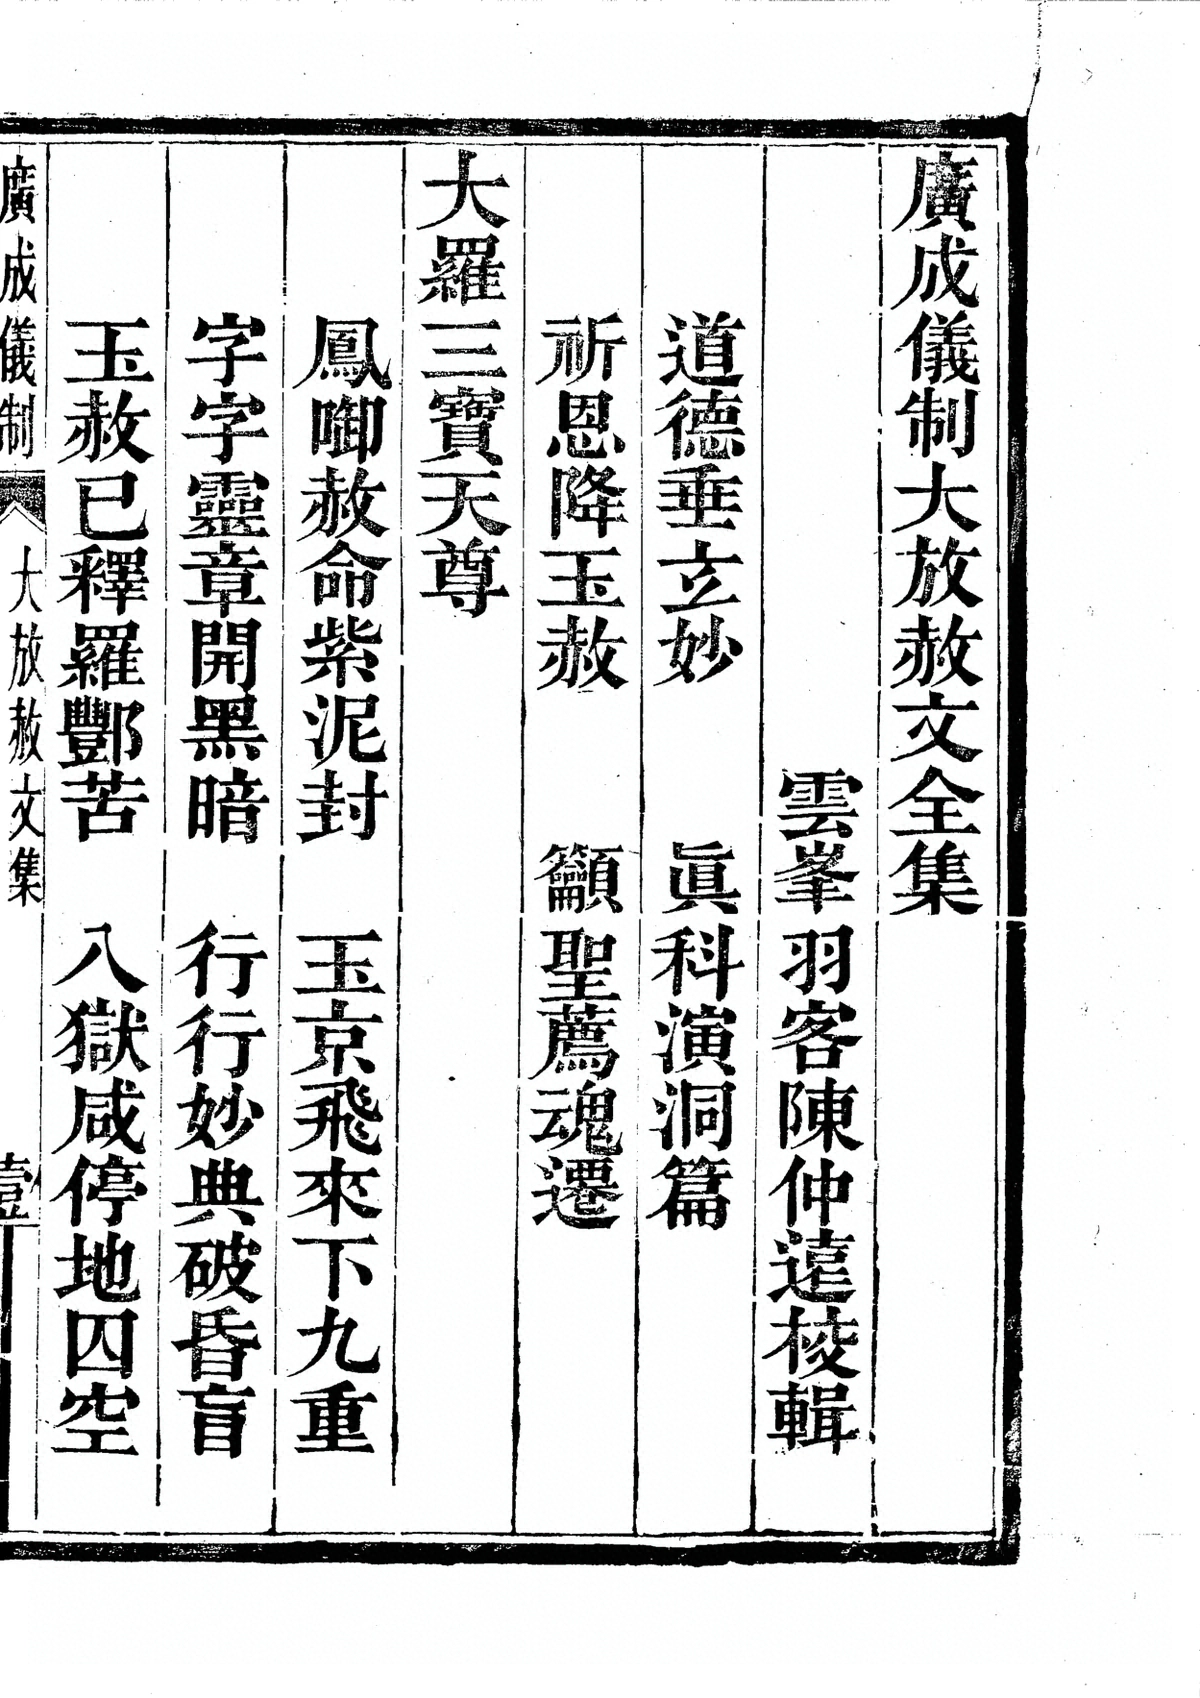 廣成儀制大放赦文全集
雲峯羽客陳仲遠校輯
道德垂玄妙　眞科演洞篇
祈恩降玉赦　籲聖薦魂遷
大羅三寶天尊
鳳啣赦命紫泥封　玉京飛來下九重
字字靈章開黑暗　行行妙典破昏盲
玉赦已釋羅酆苦　八獄咸停地四空
廣成儀制　大放赦文集　壹